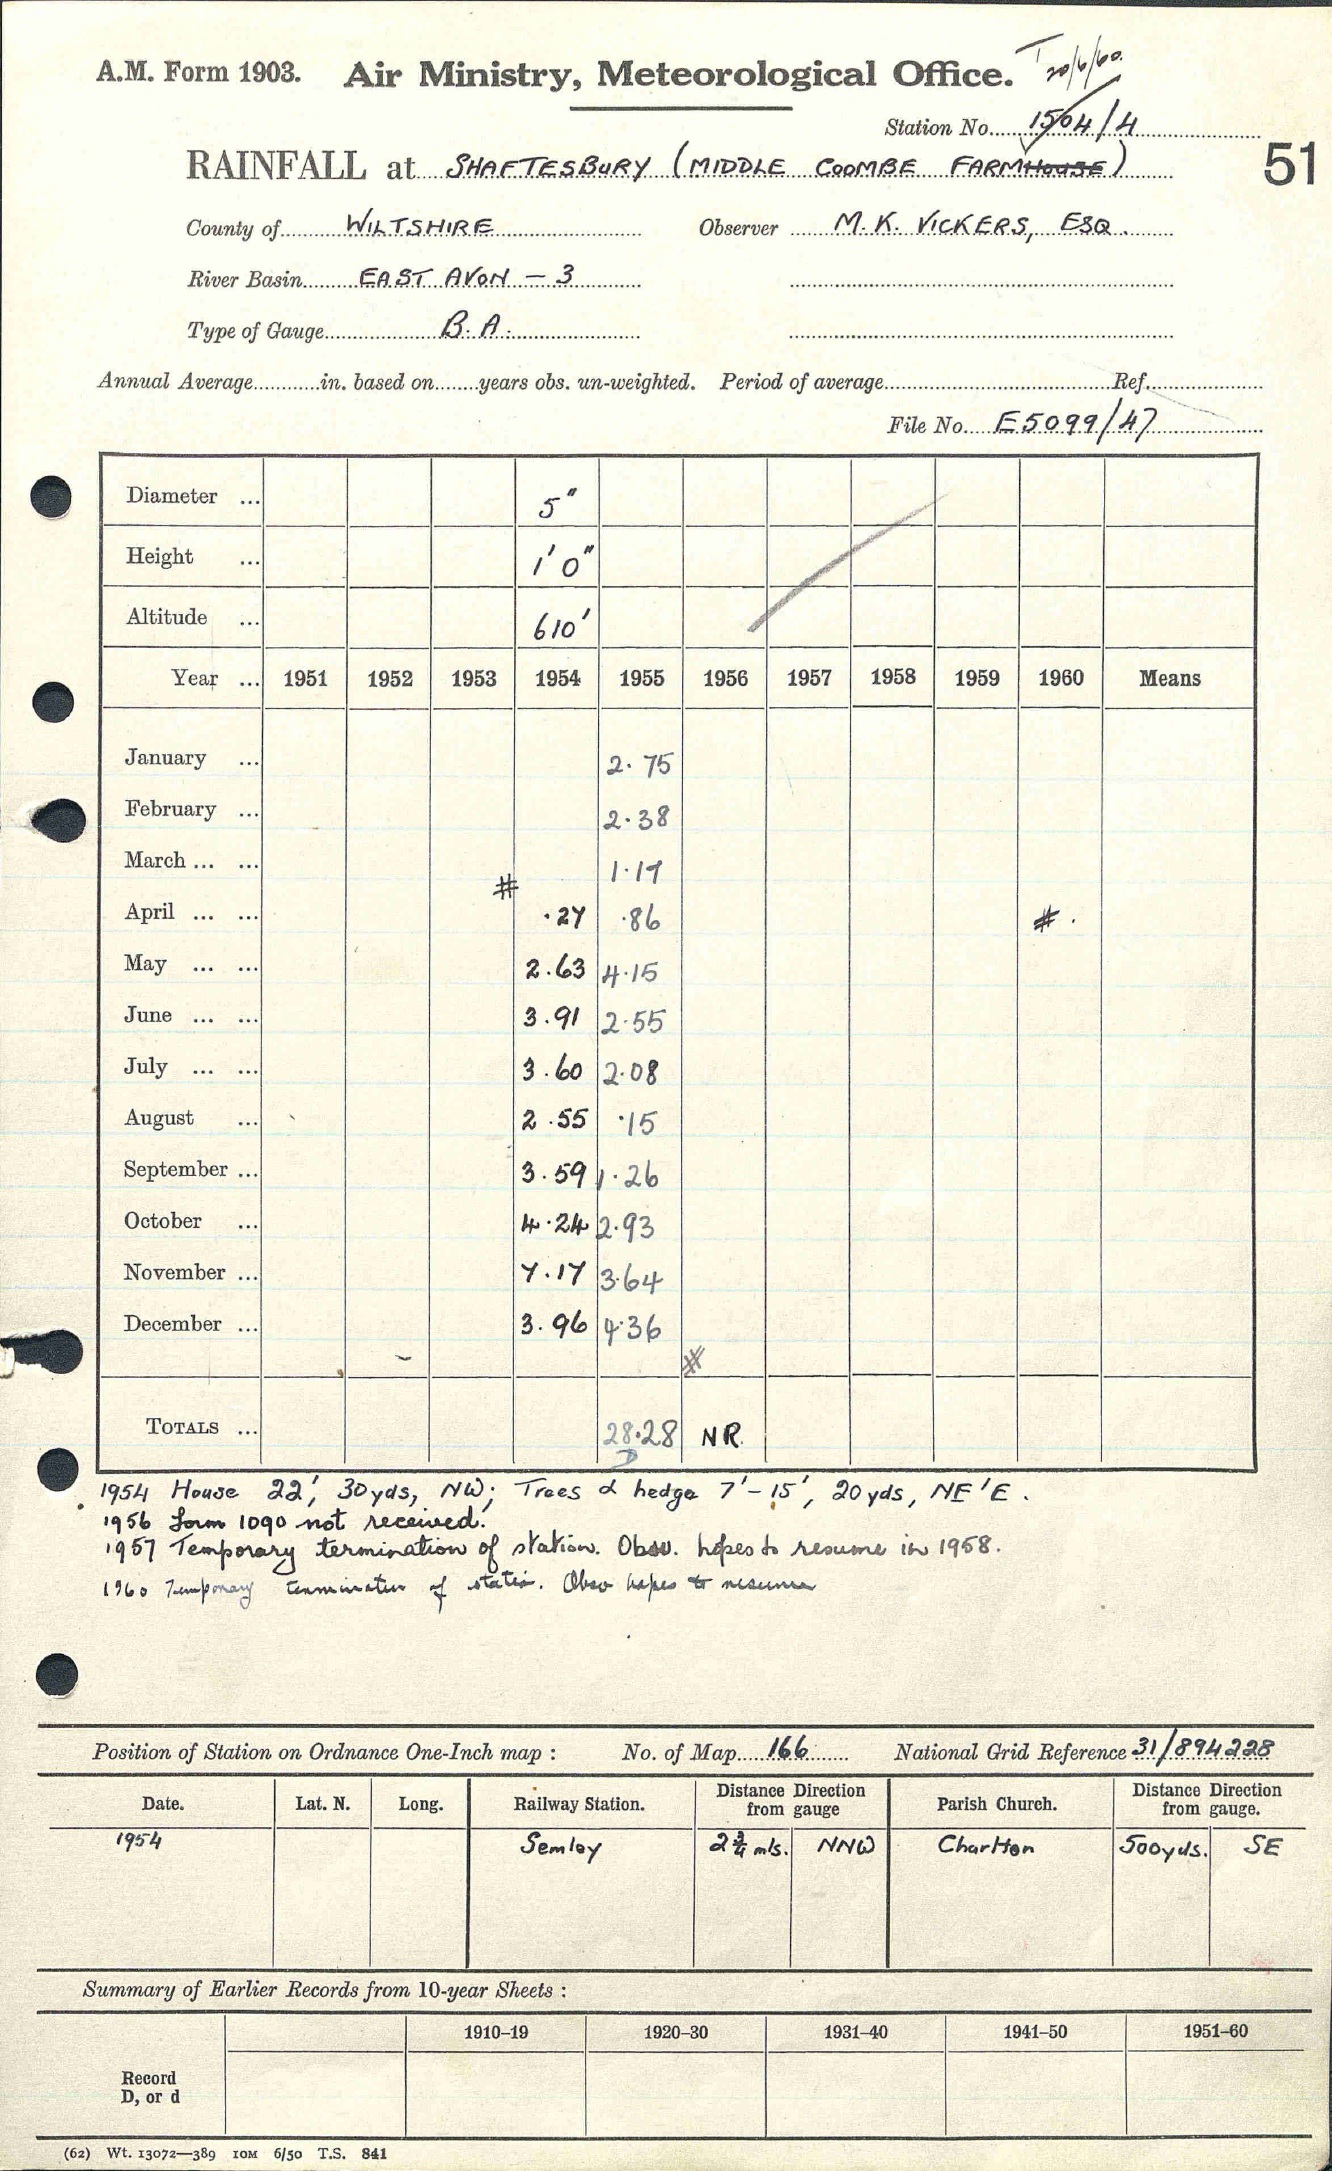 T 20/6/60.
A.M. Form 1903. Air Ministry, Meteorological Office.
Station No. 1504/4
51
RAINFALL at SHAFTESBURY (MIDDLE COOMBE FARMHOUSE)
County of WILTSHIRE Observer M.K. VICKERS, ESQ.
River Basin EAST AVON – 3
Type of Gauge B.A.
Annual Average in. based on years obs. un-weighted. Period of average Ref.
File No. E5099/47
Diameter ... 5"
Height ... 1' 0"
Altitude ... 610'
Year ... 1951 1952 1953 1954 1955 1956 1957 1958 1959 1960 Means
January ... 2.75
February ... 2.38
March ... ... 1.17
#
April ... ... .27 .86 # .
May ... ... 2.63 4.15
June ... ... 3.91 2.55
July ... ... 3.60 2.08
August ... 2.55 .15
September ... 3.59 1.26
October ... 4.24 2.93
November ... 7.17 3.64
December ... 3.96 4.36
#
TOTALS ... 28.28 NR
1954 House 22', 30yds, NW; Trees & hedge 7'–15', 20yds, NE'E.
1956 form 1090 not received.
1957 Temporary termination of station. Obsv. hopes to resume in 1958.
1960 Temporary termination of station. Obsv hopes to resume
Position of Station on Ordnance One-Inch map : No. of Map 166 National Grid Reference 31/894228
Date. Lat. N. Long. Railway Station. Distance Direction from gauge Parish Church. Distance Direction from gauge.
1954 Semley 2¾ mls. NNW Charlton 500yds. SE
Summary of Earlier Records from 10-year Sheets :
1910–19 1920–30 1931–40 1941–50 1951–60
Record
D, or d
(62) Wt. 13072—389 10M 6/50 T.S. 841